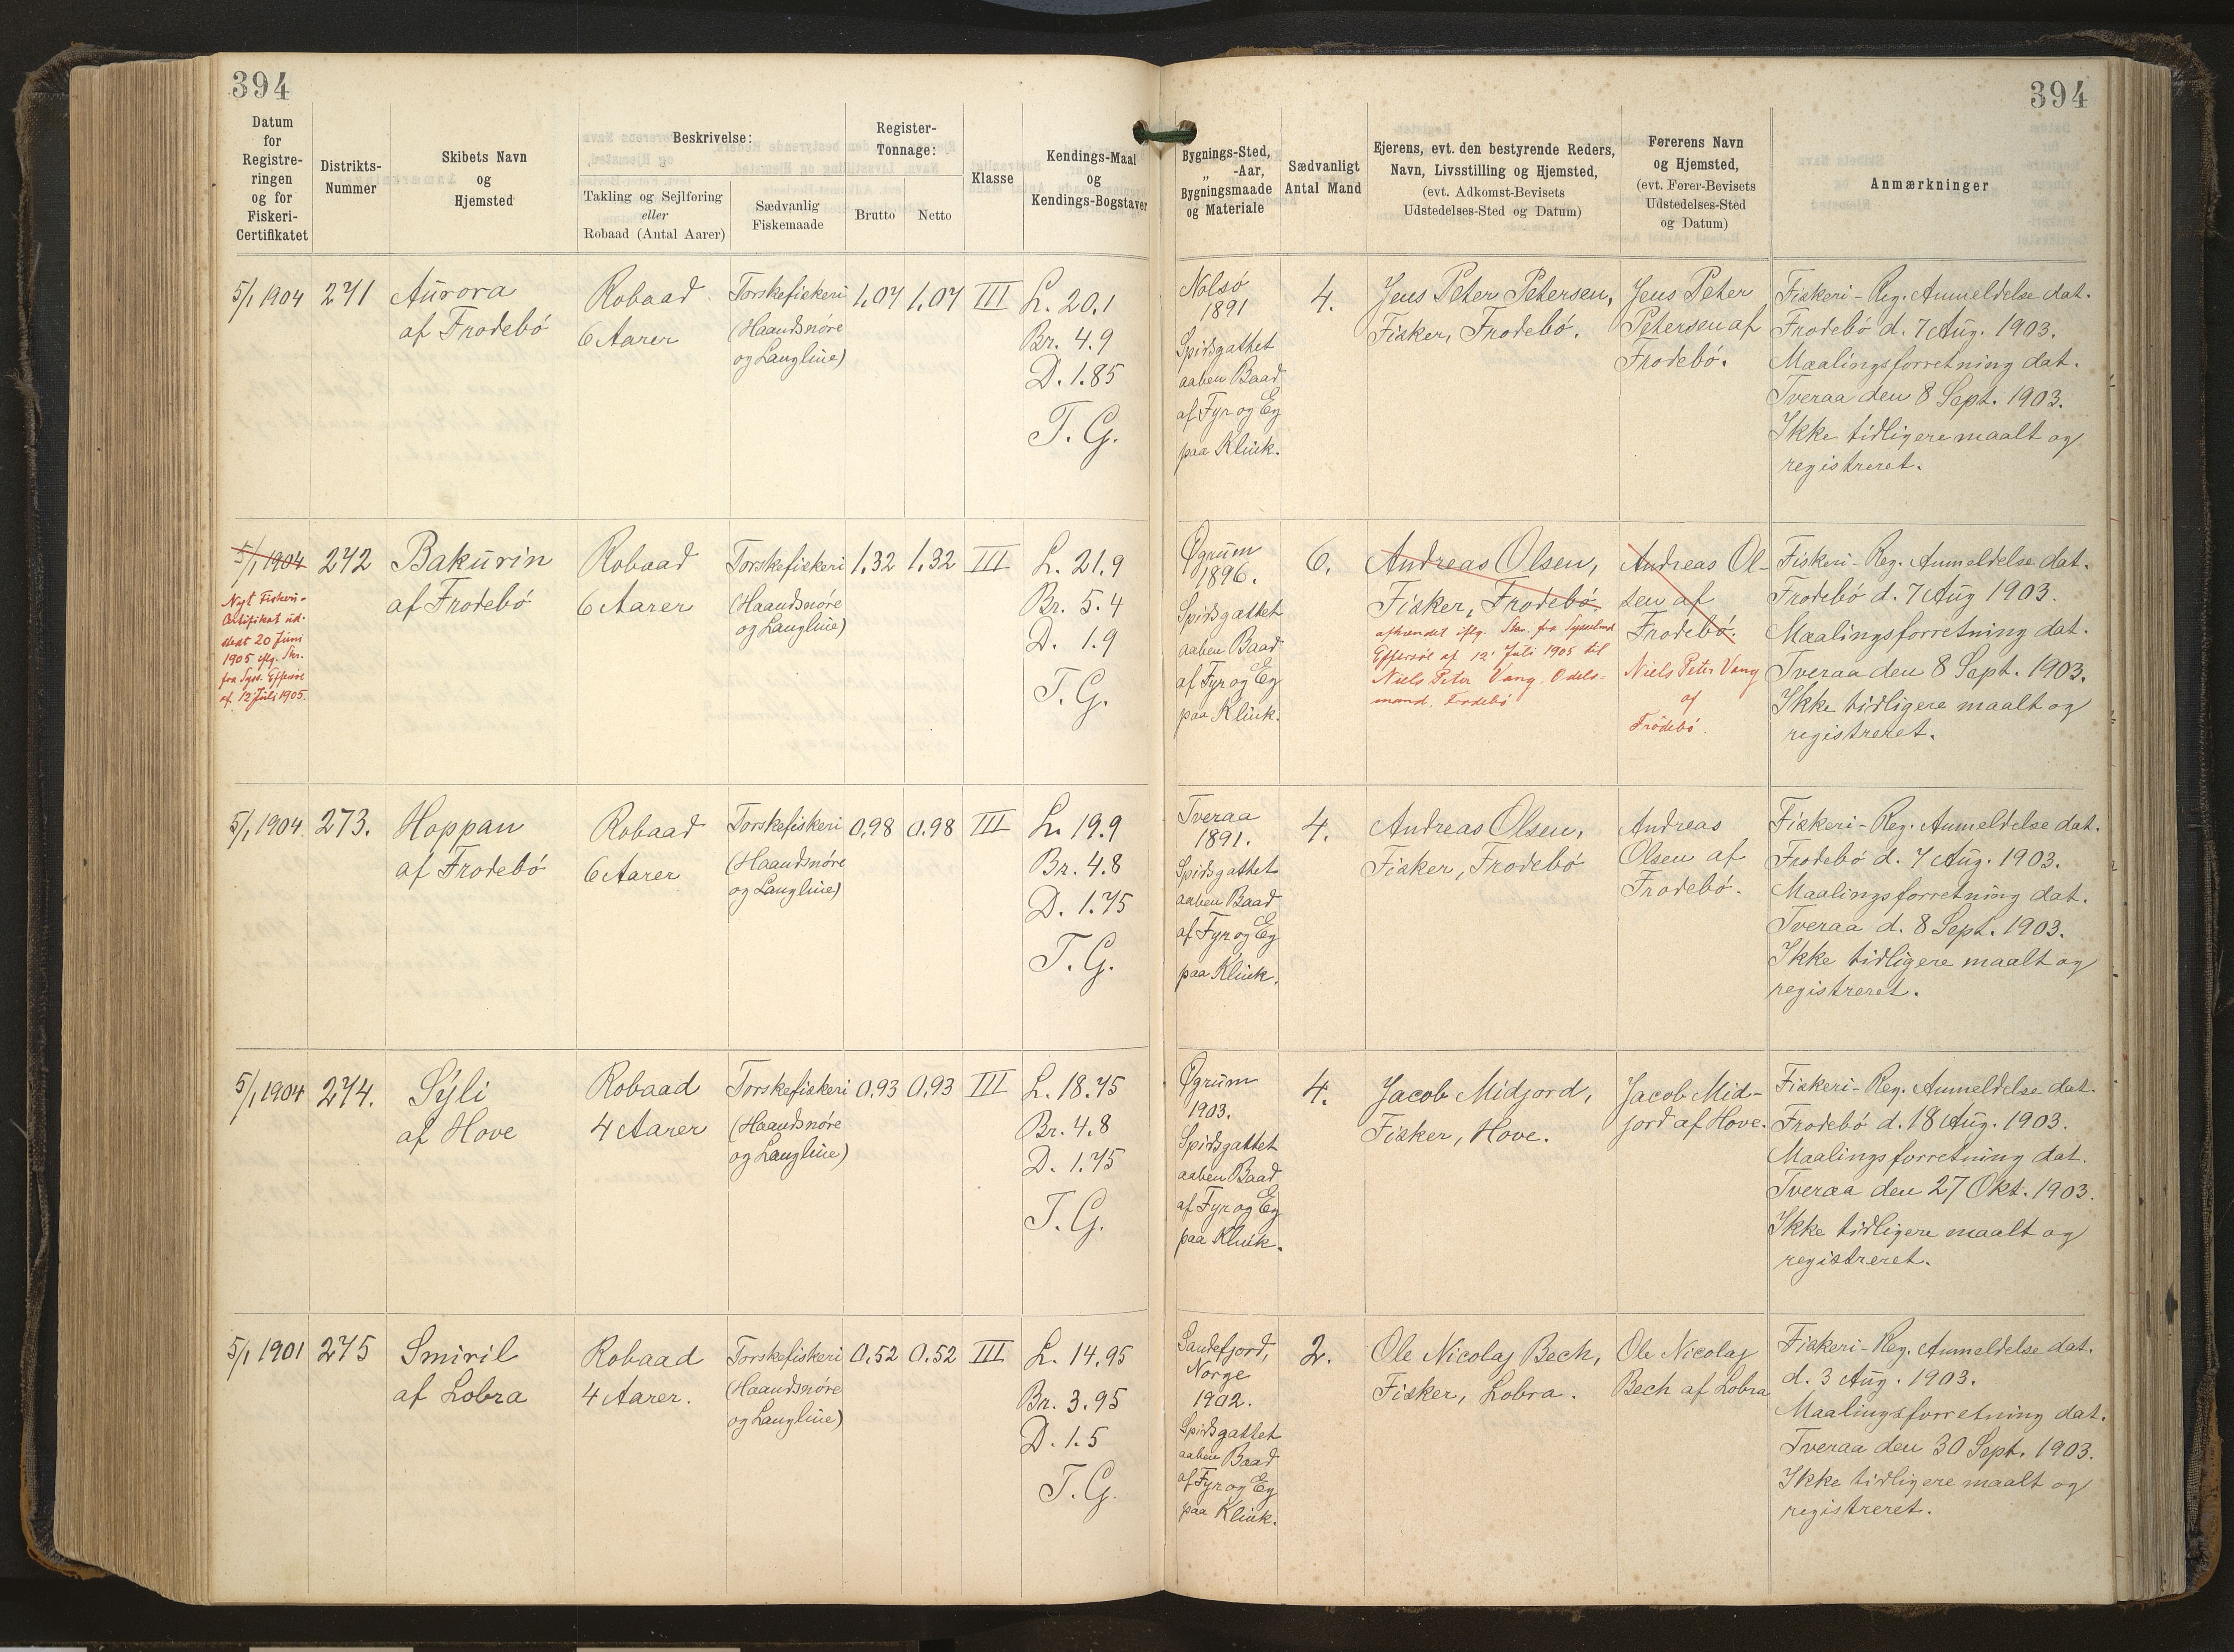 394
394
Datum
for
Registre-
ringen
og for
Fiskeri-
Certifikatet
Distrikts-
Nummer
Skibets Navn
og
Hjemsted
Beskrivelse:
Takling og Sejlføring
eller
Robaad (Antal Aarer)
Sædvanlig
Fiskemaade
Register-
Tonnage:
Brutto
Netto
Klasse
Kendings-Maal
og
Kendings-Bogstaver
Bygnings-Sted,
„ -Aar,
Bygningsmaade
og Materiale
Sædvanligt
Antal Mand
Ejerens, evt. den bestyrende Reders,
Navn, Livsstilling og Hjemsted,
(evt. Adkomst-Bevisets
Udstedelses-Sted og Datum)
Førerens Navn
og Hjemsted,
(evt. Fører-Bevisets
Udstedelses-Sted
og Datum)
Anmærkninger
5/1 1904
271
Aurora
af Frodebó
Robaad
6 Aarer
Torskefiskeri
(Haandsnóre
og Langline)
1,07
1,07
III
L. 20,1
Br. 4.9
D. 1.85
T. G.
Nolsó
1891
Spidsgattet
aaben Baad
af Fyr og Eg
paa Klink.
4.
Jens Peter Petersen,
Fisker, Frodebó.
Jens Peter
Petersen af
Frodebó.
Fiskeri-Reg. Anmeldelse dat.
Frodebó d. 7 Aug. 1903.
Maalingsforretning dat.
Tveraa den 8 Sept. 1903.
Ikke tidligere maalt og
registreret.
5/1 1904
Nyt Fiskeri-
Certifikat ud-
stedt 20 Juni
1905 iflg. Skr.
fra Syss. Effersöe
af 12 Juli 1905.
272
Bakurin
af Frodebó
Robaad
6 Aarer
Torskefiskeri
(Haandsnóre
og Langline)
1,32
1,32
III
L. 21.9
Br. 5.4
D. 1.9
T. G.
Øgrum
1896.
Spidsgattet
aaben Baad
af Fyr og Eg
paa Klink.
6.
Andreas Olsen,
Fisker, Frodebó.
afhændet iflg. Skr. fra Sysselmd
Effersöe af 12' Juli 1905 til
Niels Peter Vang. Odels-
mand, Frodebó
Andreas Ol-
sen af
Frodebó.
Niels Peter Vang
af
Frodebó.
Fiskeri-Reg. Anmeldelse dat.
Frodebó d. 7 Aug 1903.
Maalingsforretning dat.
Tveraa den 8 Sept. 1903.
Ikke tidligere maalt og
registreret.
5/1 1904
273.
Hoppan
af Frodebó
Robaad
6 Aarer
Torskefiskeri
(Haandsnóre
og Langline)
0,98
0.98
III
L. 19.9
Br. 4.8
D. 1.75
T. G.
Tveraa
1891.
Spidsgattet
aaben Baad
af Fyr og Eg
paa Klink.
4.
Andreas Olsen,
Fisker, Frodebó
Andreas
Olsen af
Frodebó.
Fiskeri-Reg. Anmeldelse dat.
Frodebó d. 7 Aug. 1903.
Maalingsforretning dat.
Tveraa d. 8 Sept. 1903.
Ikke tidligere maalt og
registreret.
5/1 1904
274.
Sýli
af Hove
Robaad
4 Aarer
Torskefiskeri
(Haandsnóre
og Langline)
0.93
0,93
III
L. 18.75
Br. 4.8
D. 1.75
T. G.
Øgrum
1903.
Spidsgattet
aaben Baad
af Fyr og Eg
paa Klink.
4.
Jacob Midjord,
Fisker, Hove.
Jacob Mid-
jord af Hove.
Fiskeri-Reg. Anmeldelse dat.
Frodebó d. 18 Aug. 1903.
Maalingsforretning dat.
Tveraa den 27 Okt. 1903.
Ikke tidligere maalt og
registreret.
5/1 1901
275
Smiril
af Lobra
Robaad
4 Aarer.
Torskefiskeri
(Haandsnóre
og Langline)
0.52
0.52
III
L. 14.95
Br. 3.95
D. 1.5
T. G.
Sandefjord,
Norge
1902.
Spidsgattet
aaben Baad
af Fyr og Eg
paa Klink.
2.
Ole Nicolaj Bech,
Fisker, Lobra.
Ole Nicolaj
Bech af Lobra
Fiskeri-Reg. Anmeldelse dat.
d. 3 Aug. 1903.
Maalingsforretning dat.
Tveraa den 30 Sept. 1903.
Ikke tidligere maalt og
registreret.